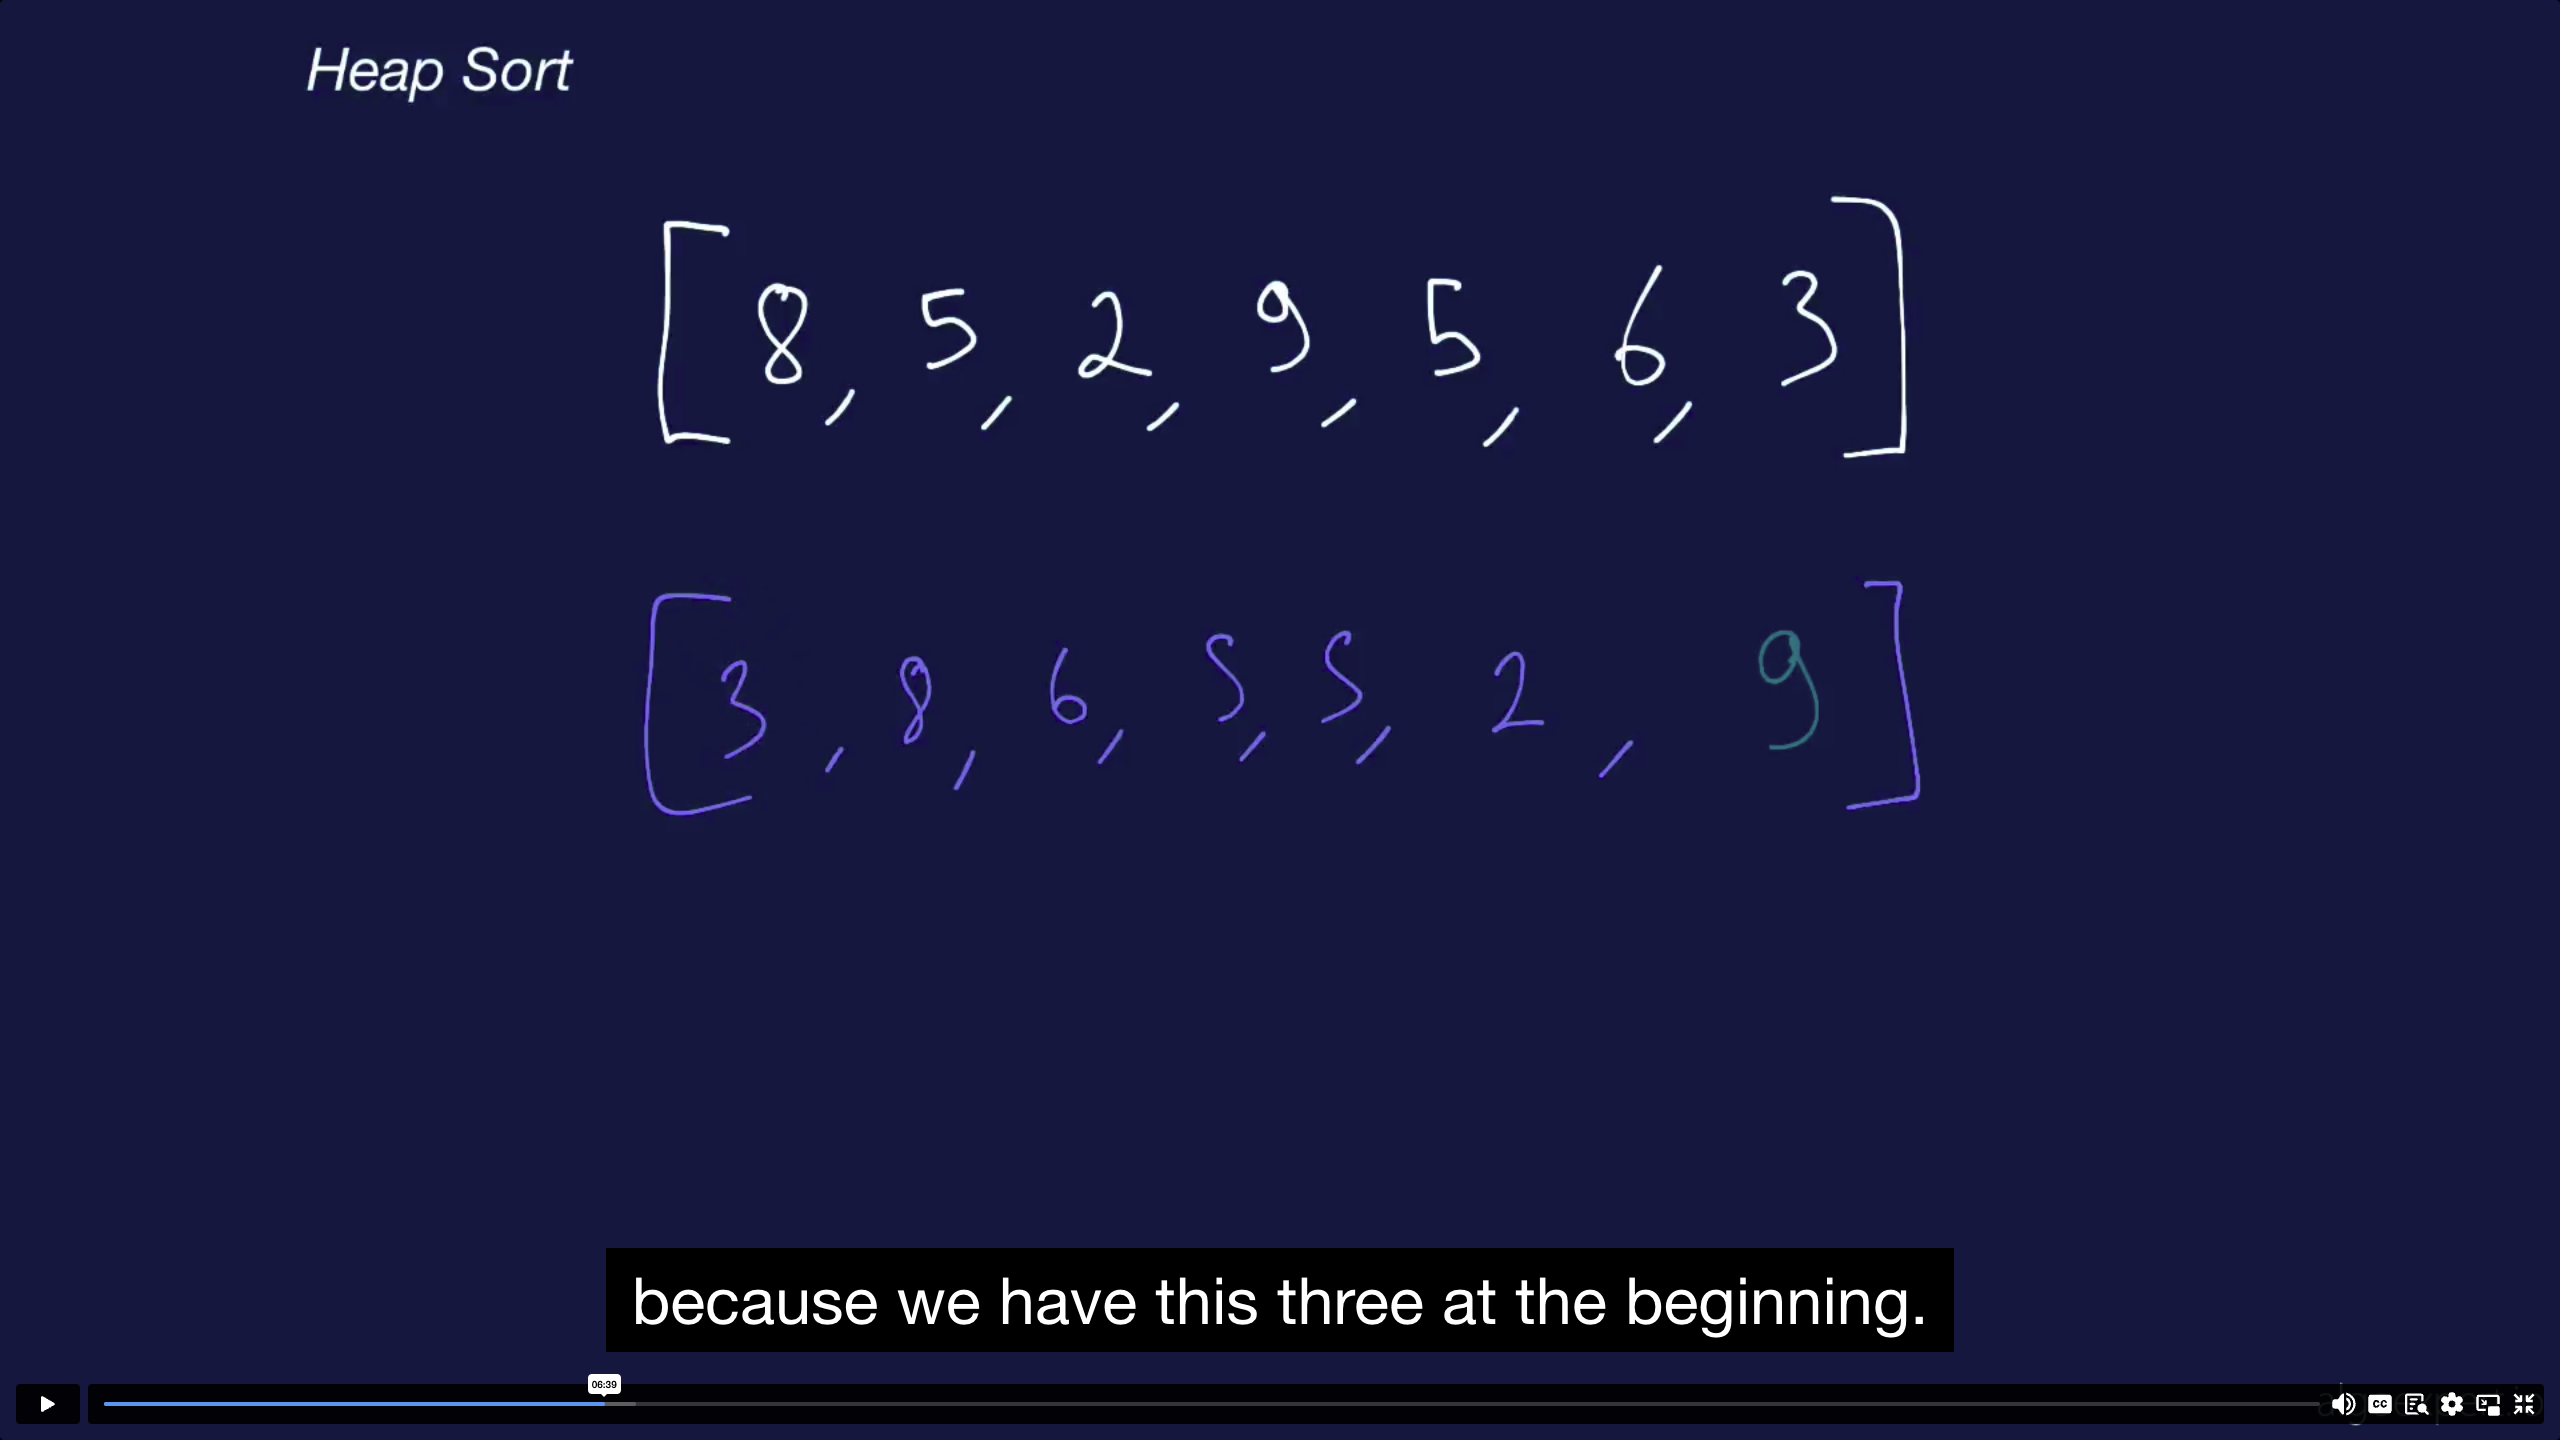 Heap Sort
[8, 5, 2, 9, 5, 6, 3]
[3, 8, 6, 5, 5, 2, 9]
because we have this three at the beginning.
06:39
CC